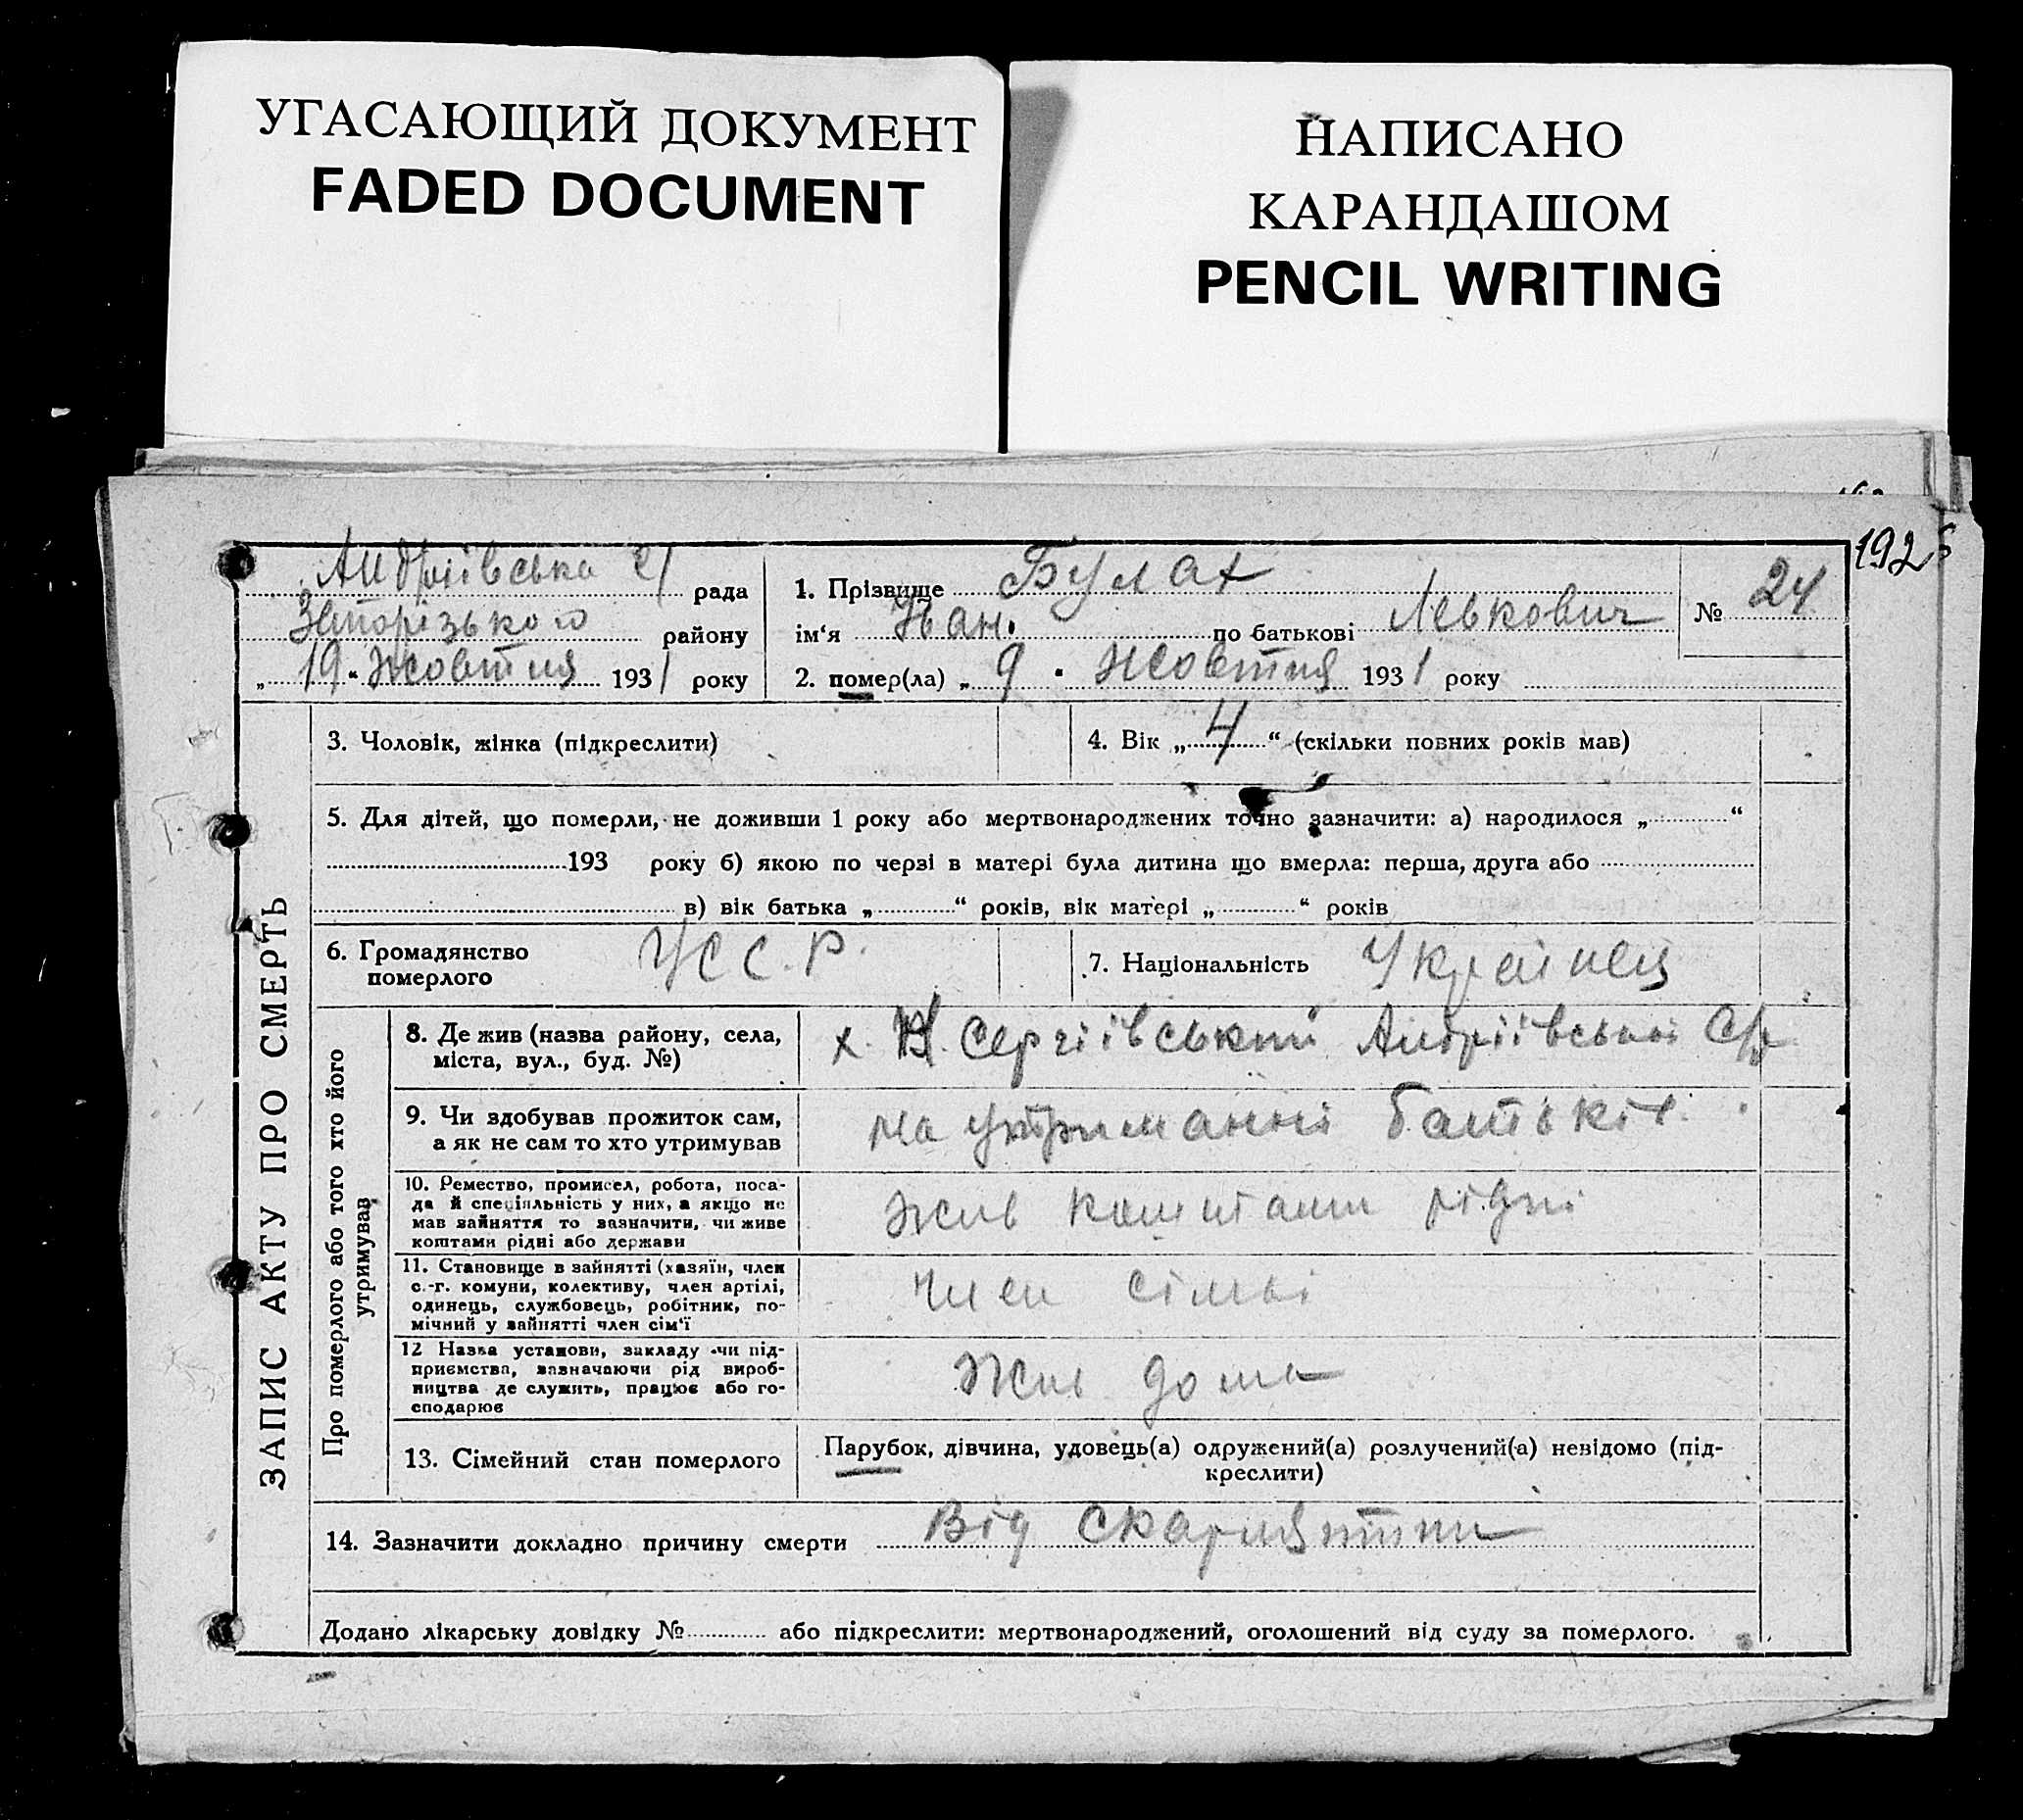 УГАСАЮЩИЙ ДОКУМЕНТ
FADED DOCUMENT
НАПИСАНО
КАРАНДАШОМ
PENCIL WRITING
192
Андріївська с/ рада
Запорізького району
„19“ Жовтня 1931 року
1. Прізвище Булах
ім‘я Іван. по батькові Левкович
№ 24
2. помер(ла) „9“ Жовтня 1931 року
ЗАПИС АКТУ ПРО СМЕРТЬ
3. Чоловік, жінка (підкреслити)
4. Вік „4“ (скільки повних років мав)
5. Для дітей, що померли, не доживши 1 року або мертвонароджених точно зазначити: а) народилося „ “
193 року б) якою по черзі в матері була дитина що вмерла: перша, друга або
в) вік батька „ “ років, вік матері „ “ років
6. Громадянство
померлого
УССР.
7. Національність Українец
Про померлого або того хто його
утримував
8. Де жив (назва району, села,
міста, вул., буд. №)
х. Н. Сергіївський Андріївської С/р
9. Чи здобував прожиток сам,
а як не сам то хто утримував
на утриманні батьків.
10. Ремество, промисел, робота, поса-
да й спеціяльність у них, а якщо не
мав зайняття то зазначити, чи живе
коштами рідні або держави
жив коштами рідні
11. Становище в зайнятті (хазяїн, член
с.-г. комуни, колективу, член артілі,
одинець, службовець, робітник, по-
мічний у зайнятті член сім‘ї
член сімьі
12 Назва установи, закладу чи під-
приємства, зазначаючи рід вироб-
ництва де служить, працює або го-
сподарює
Жив дома
13. Сімейний стан померлого
Парубок, дівчина, удовець(а) одружений(а) розлучений(а) невідомо (під-
креслити)
14. Зазначити докладно причину смерти Від скарлятини
Додано лікарську довідку № або підкреслити: мертвонароджений, оголошений від суду за померлого.